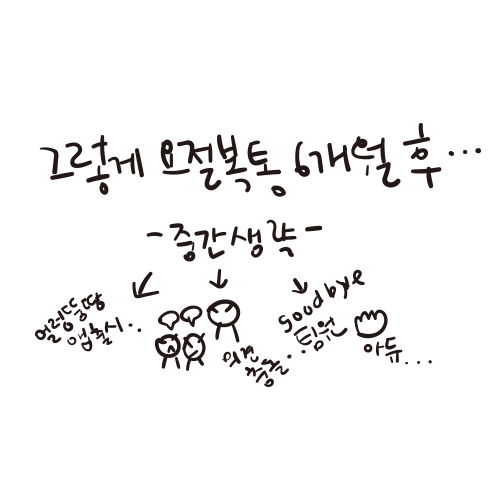 그렇게 요절복통 6개월 후...
-중간생략-
얼렁뚱땅
앱출시...
의견
차이로...
goodbye
팀원
아듀...